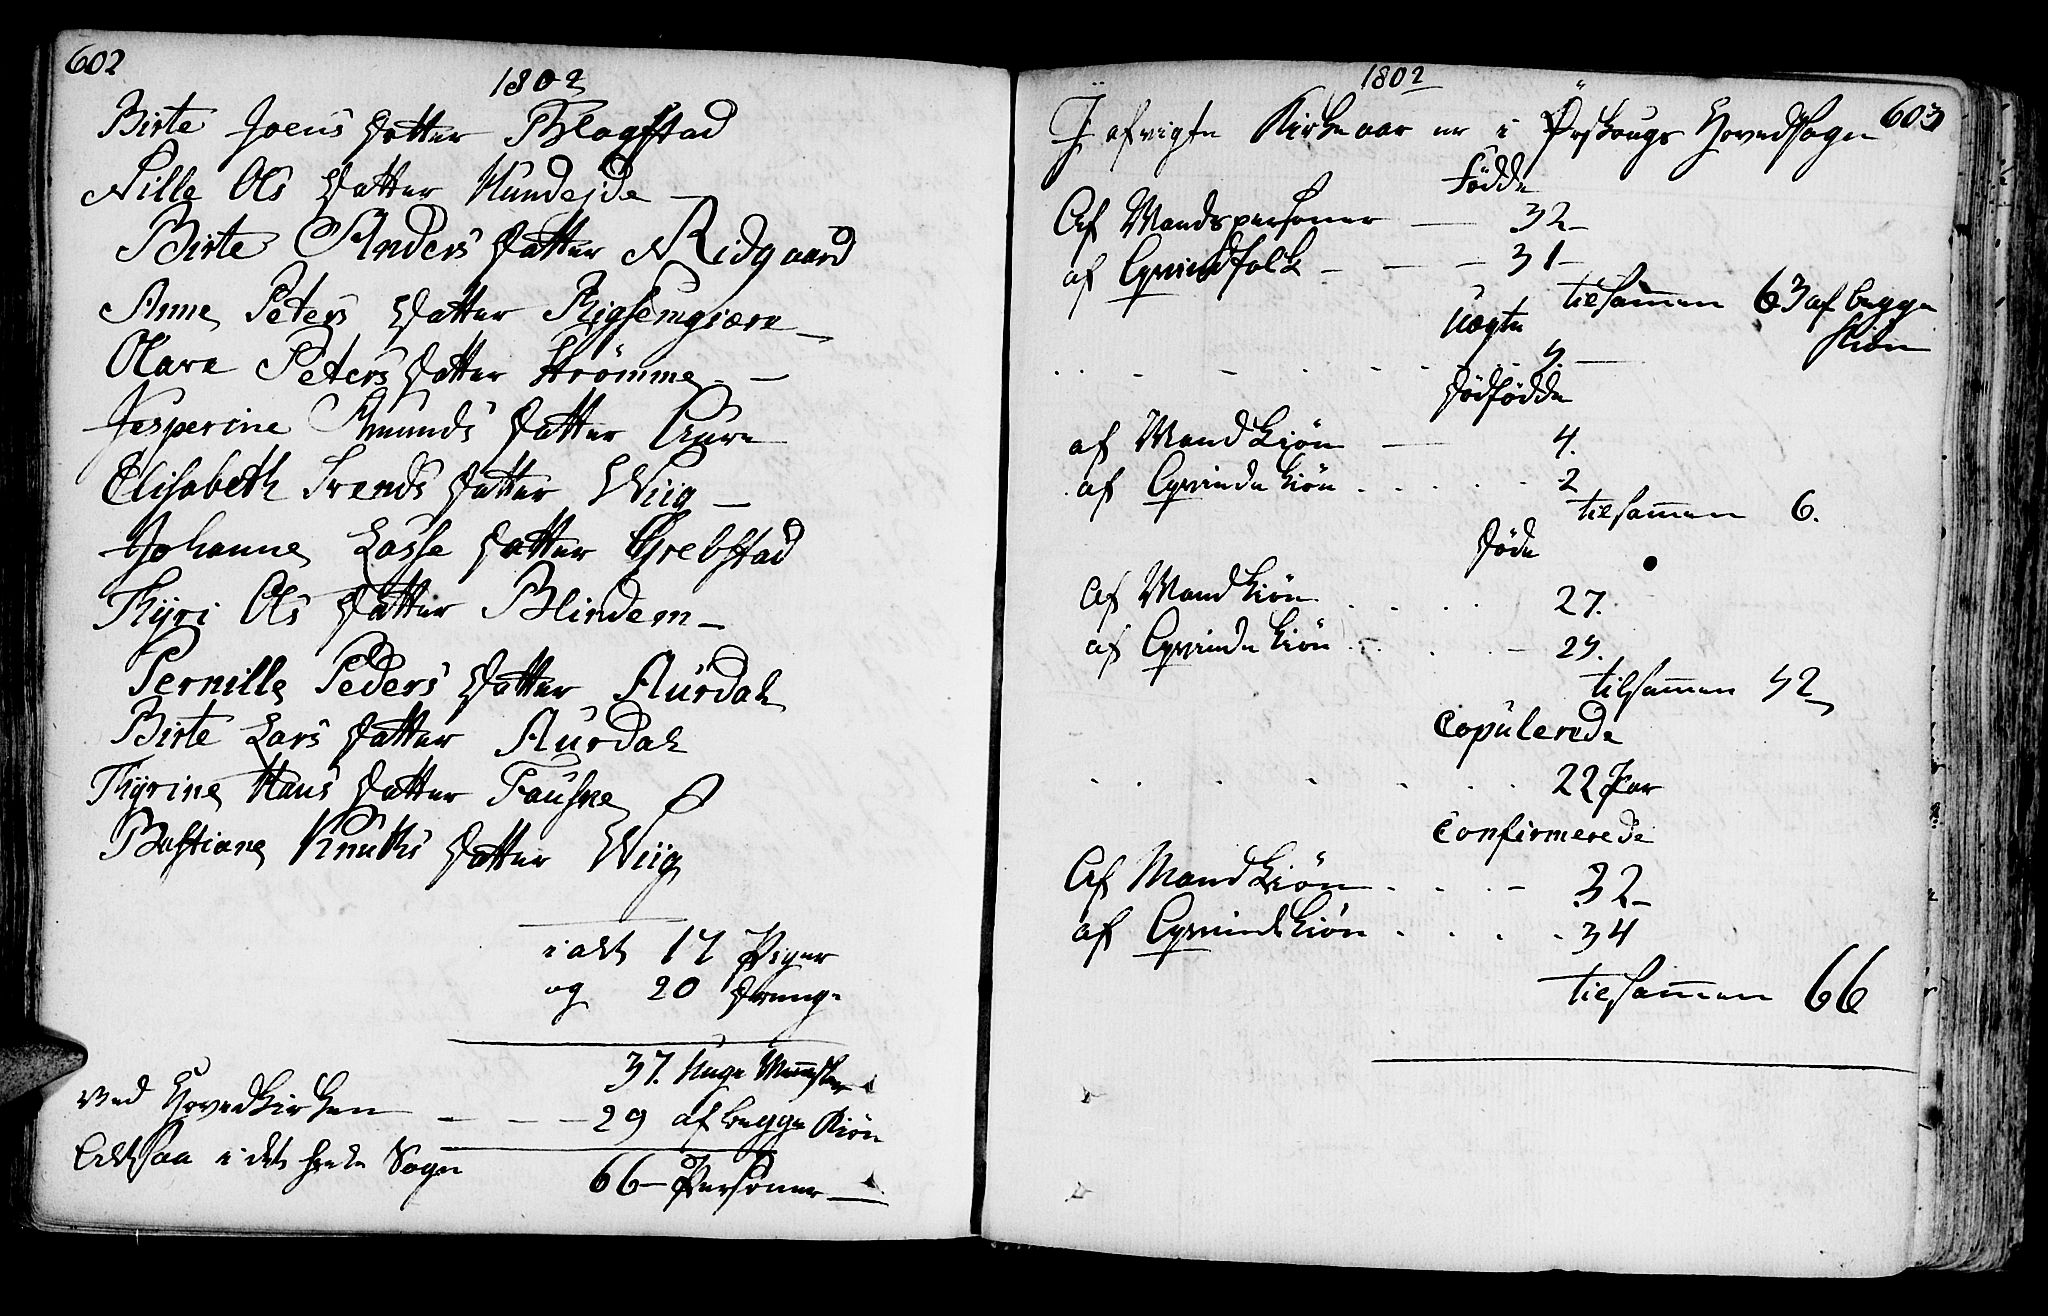 602
1802
Birte Joens Datter Blogstad
Nille Ols Datter Hundejde
Birte Anders Datter Nidgaard
Anne Peters Datter Rigsemgiære
Olave Peters Datter Strømme
Jesperine Amunds Datter Aure
Elisabeth Svends Datter Wiig
Johanne Lasse Datter Grebstad
Thyri Ols Datter Blindem
Pernille Peders Datter Aurdal
Birte Lars Datter Aurdal
Thyrine Hans Datter Fauske
Bastiane Knuds Datter Wiig
i alt 17 Piger
og 20 Drenge
37. Unge Mennsker
ved Hovedkirken 29 af begge Kiøn
Altsaa i det hele Sogn 66 Personer
1802
603
I afvigte Kirke aar er i Ørskougs Hovedsogn
Fødde
Af Mandspersoner 32
af Qvindfolk 31
tilsamen 63 af begge
Kiøn
Uægte
Dødfødde
af Mandkiøn 4.
af Qvindekiøn 2
tilsamen 6.
Døde
Af Mandkiøn 27.
af Qvindekiøn
tilsamen
Copulerede
22 Par
Confirmerede
Af Mandkiøn 32
af Qvindekiøn 34
tilsamen 66